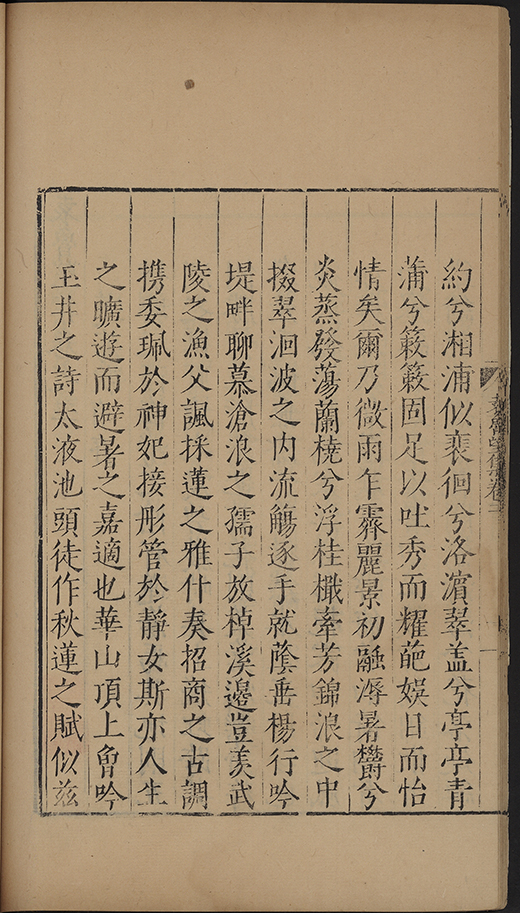 約兮湘浦似裵徊兮洛濵翠盖兮亭亭青
蒲兮簌簌固足以吐秀而耀葩娛日而怡
情矣爾乃微雨乍霽麗景初融溽暑欝兮
炎蒸發蕩蘭橈兮浮桂檝牽芳錦浪之中
掇翠洄波之内流觴逐手就蔭垂楊行吟
堤畔聊慕滄浪之孺子放棹溪邉豈羡武
陵之漁父諷採蓮之雅什奏招商之古調
携委珮於神妃接彤管於静女斯亦人生
之曠遊而避暑之嘉適也華山頂上曾吟
玉井之詩太液池頭徒作秋蓮之賦似兹